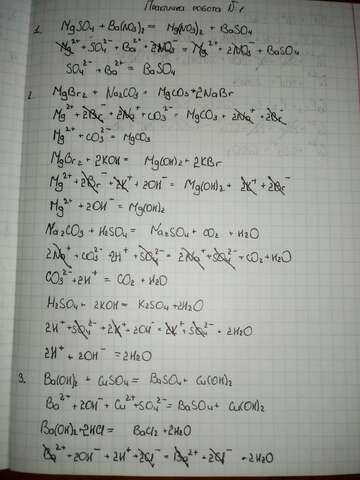 Практична робота № 1
1.
MgSO4 + Ba(NO3)2 = Mg(NO3)2 + BaSO4
Mg²⁺ + SO4²⁻ + Ba²⁺ + 2NO3⁻ = Mg²⁺ + 2NO3⁻ + BaSO4
SO4²⁻ + Ba²⁺ = BaSO4
2.
MgBr2 + Na2CO3 = MgCO3 + 2NaBr
Mg²⁺ + 2Br⁻ + 2Na⁺ + CO3²⁻ = MgCO3 + 2Na⁺ + 2Br⁻
Mg²⁺ + CO3²⁻ = MgCO3
MgBr2 + 2KOH = Mg(OH)2 + 2KBr
Mg²⁺ + 2Br⁻ + 2K⁺ + 2OH⁻ = Mg(OH)2 + 2K⁺ + 2Br⁻
Mg²⁺ + 2OH⁻ = Mg(OH)2
Na2CO3 + H2SO4 = Na2SO4 + CO2 + H2O
2Na⁺ + CO3²⁻ + 2H⁺ + SO4²⁻ = 2Na⁺ + SO4²⁻ + CO2 + H2O
CO3²⁻ + 2H⁺ = CO2 + H2O
H2SO4 + 2KOH = K2SO4 + 2H2O
2H⁺ + SO4²⁻ + 2K⁺ + 2OH⁻ = 2K⁺ + SO4²⁻ + 2H2O
2H⁺ + 2OH⁻ = 2H2O
3. Ba(OH)2 + CuSO4 = BaSO4 + Cu(OH)2
Ba²⁺ + 2OH⁻ + Cu²⁺ + SO4²⁻ = BaSO4 + Cu(OH)2
Ba(OH)2 + 2HCl = BaCl2 + 2H2O
Ba²⁺ + 2OH⁻ + 2H⁺ + 2Cl⁻ = Ba²⁺ + 2Cl⁻ + 2H2O